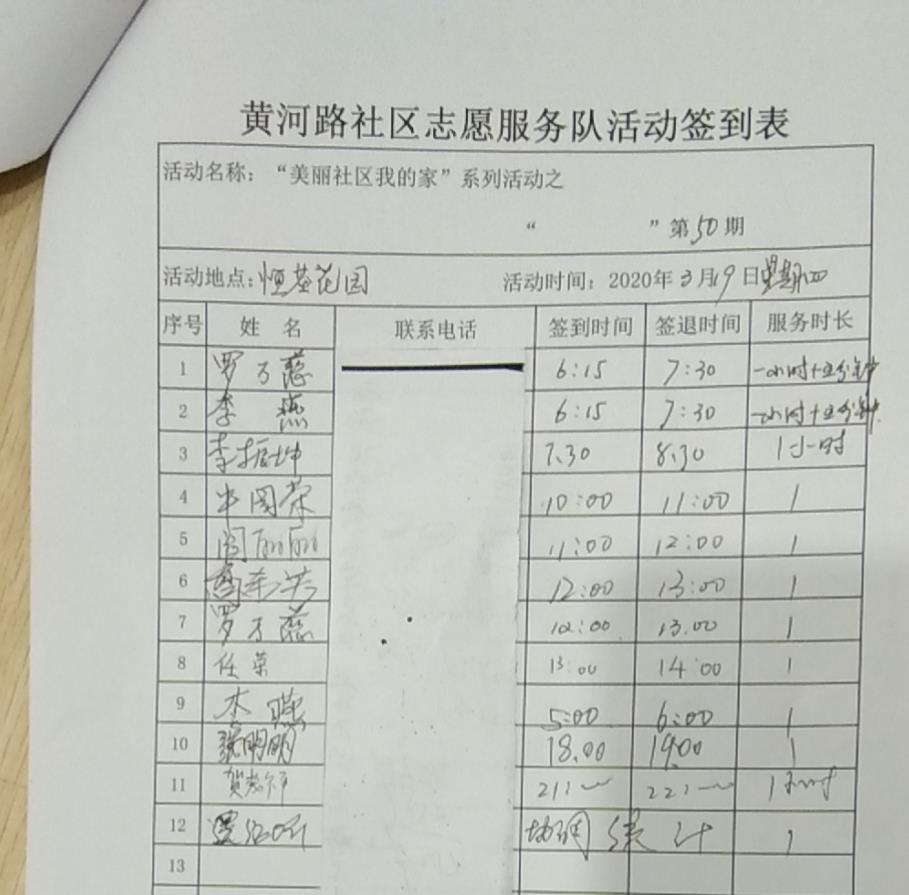 黄河路社区志愿服务队活动签到表
活动名称：“美丽社区我的家”系列活动之
“ ”第50期
活动地点:恒基花园 活动时间：2020年3月19日星期四
序号 姓 名 联系电话 签到时间 签退时间 服务时长
1 罗万慈 6:15 7:30 一小时十五分钟
2 李燕 6:15 7:30 一小时十五分钟
3 李振坤 7.30 8.30 1小时
4 国荣 10:00 11:00 1
5 阎丽丽 11:00 12:00 1
6 12:00 13:00 1
7 罗万慈 12:00 13.00 1
8 任荣 13:00 14:00 1
9 5:00 6:00 1
10 张明明 18.00 19.00 1
11 21: 22: 1小时
12 协调 统计 1
13